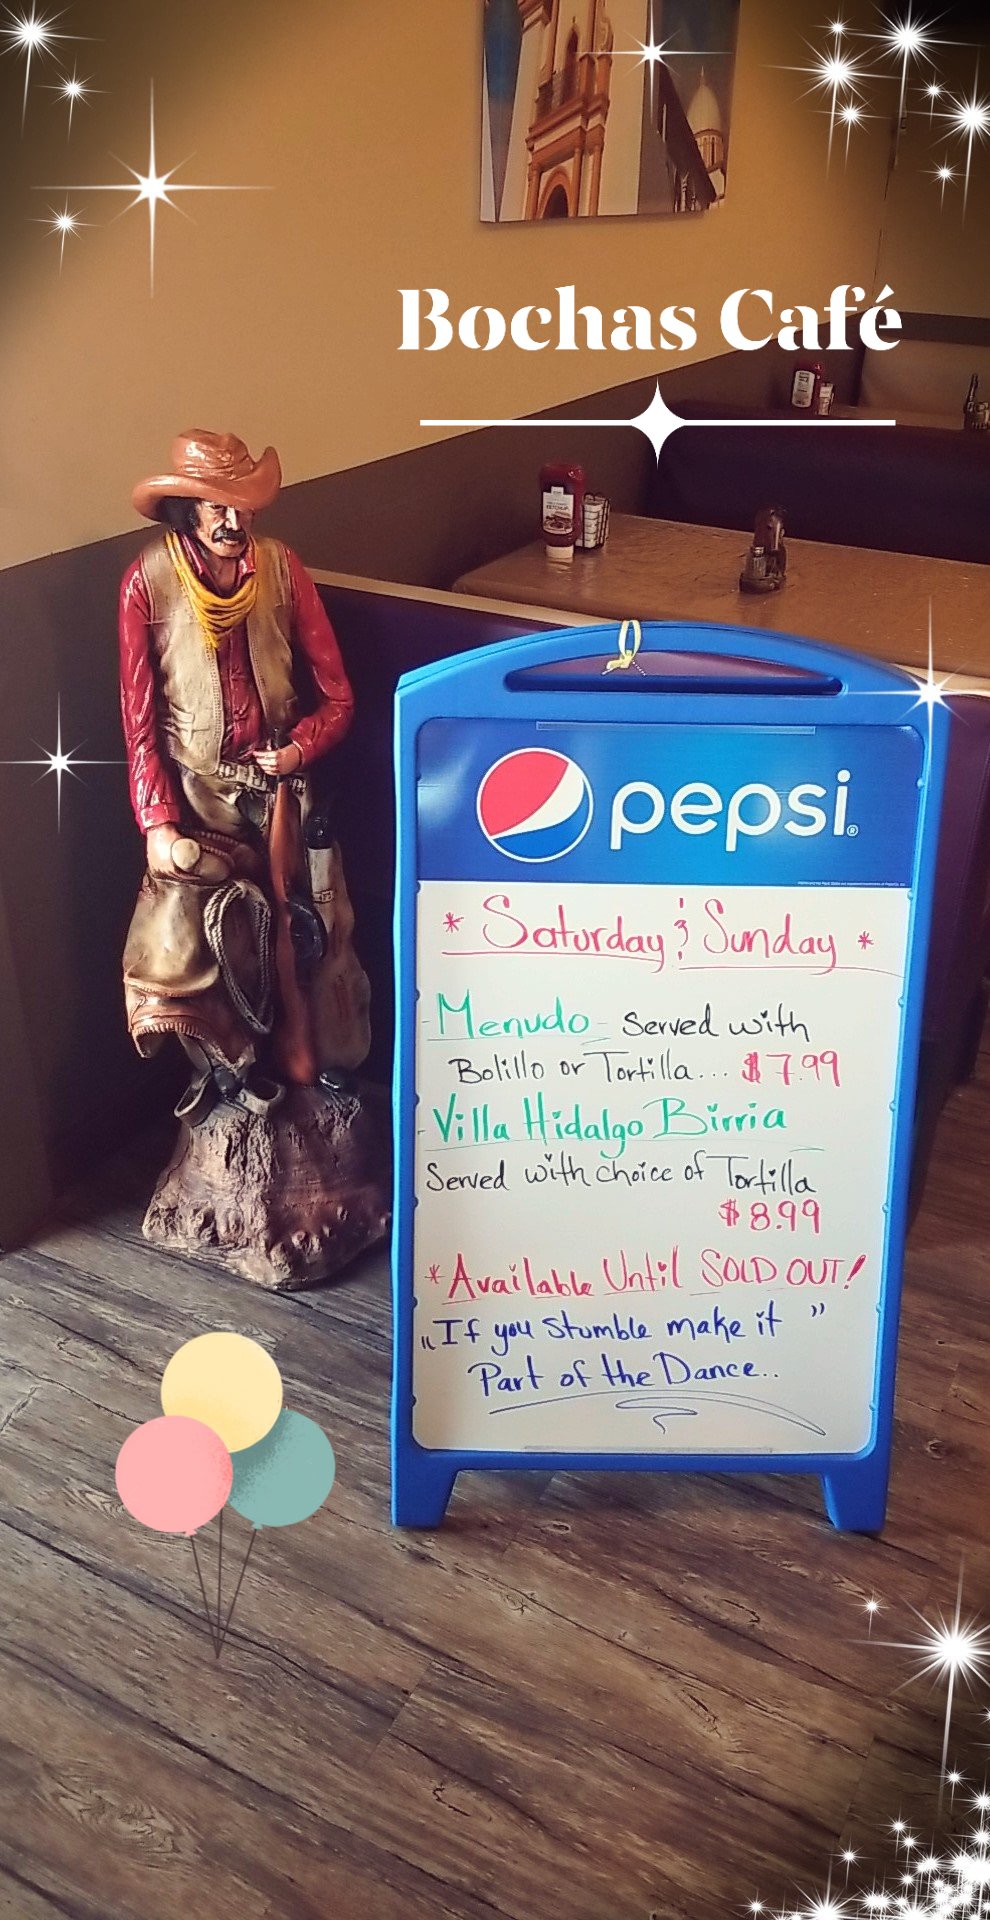 Bochas Café
KETCHUP
pepsi®
* Saturday & Sunday *
- Menudo - Served with
Bolillo or Tortilla... $7.99
- Villa Hidalgo Birria
Served with choice of Tortilla
$8.99
*Available Until SOLD OUT!
"If you stumble make it "
Part of the Dance..